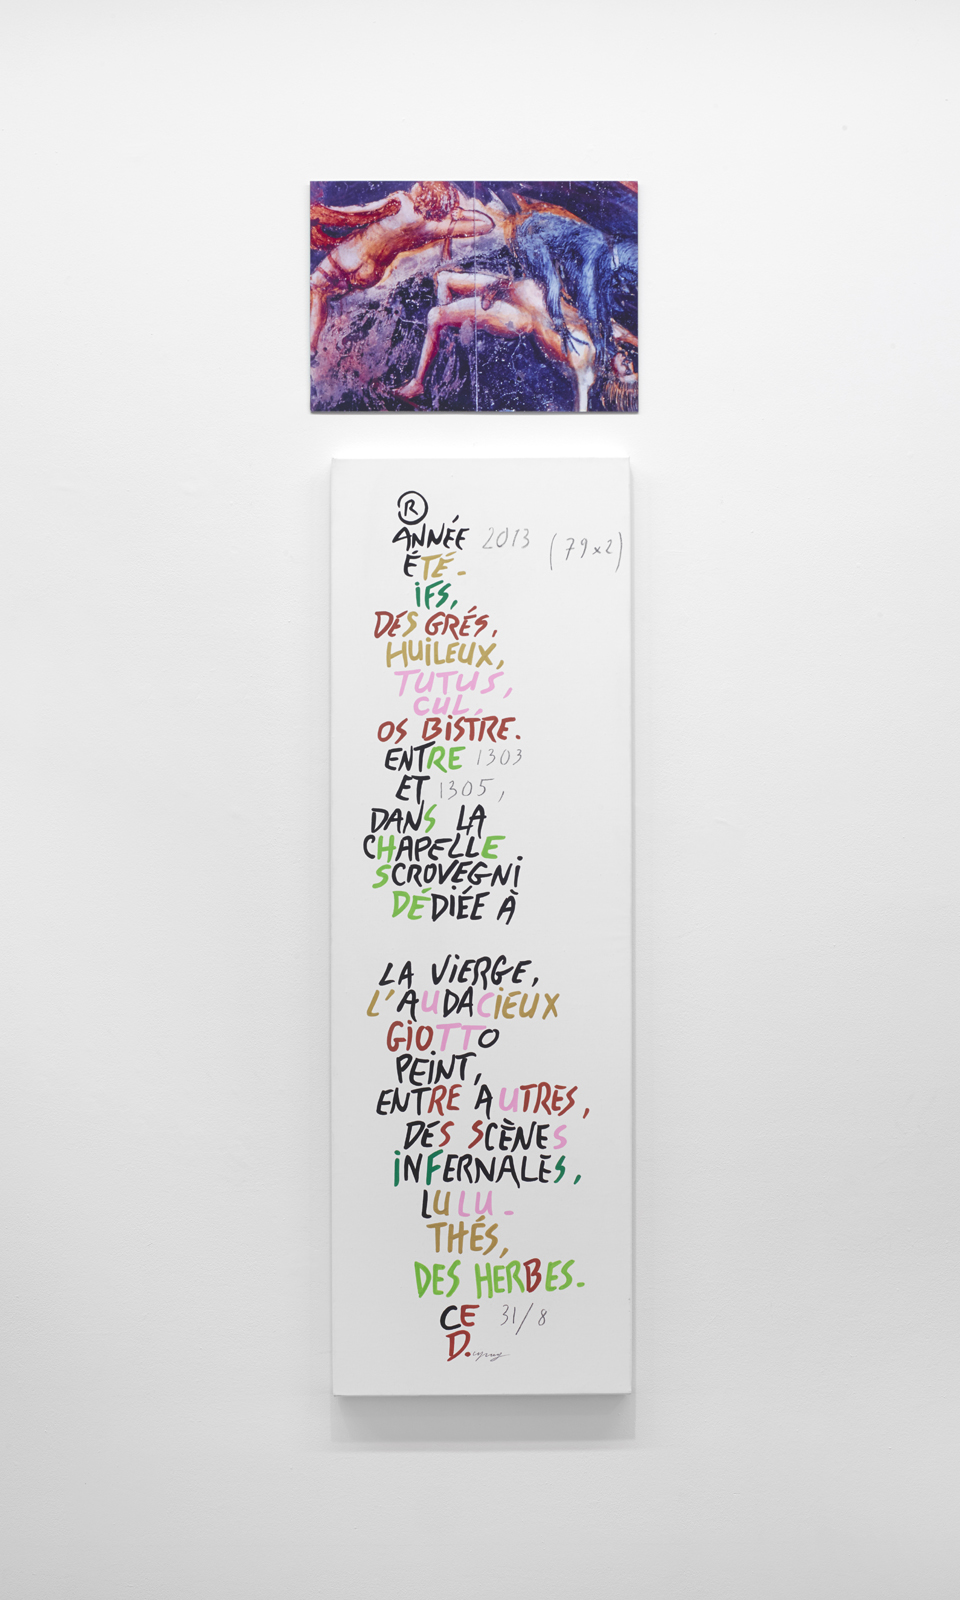 ®
ANNÉE 2013 (79x2)
ÉTÉ-
iFS,
DÉS GRÉS,
HUiLEUX,
TUTUS,
CUL.
OS BiSTRE.
ENTRE 1303
ET 1305,
DANS LA
CHAPELLE
SCROVEGNi
DÉDiÉE À
LA ViERGE,
L'AUDACiEUX
GiOTTO
PEiNT,
ENTRE AUTRES,
DÉS SCÈNES
iNFERNALES,
LULU-
THÉS,
DES HERBES.
CE 31/8
D.